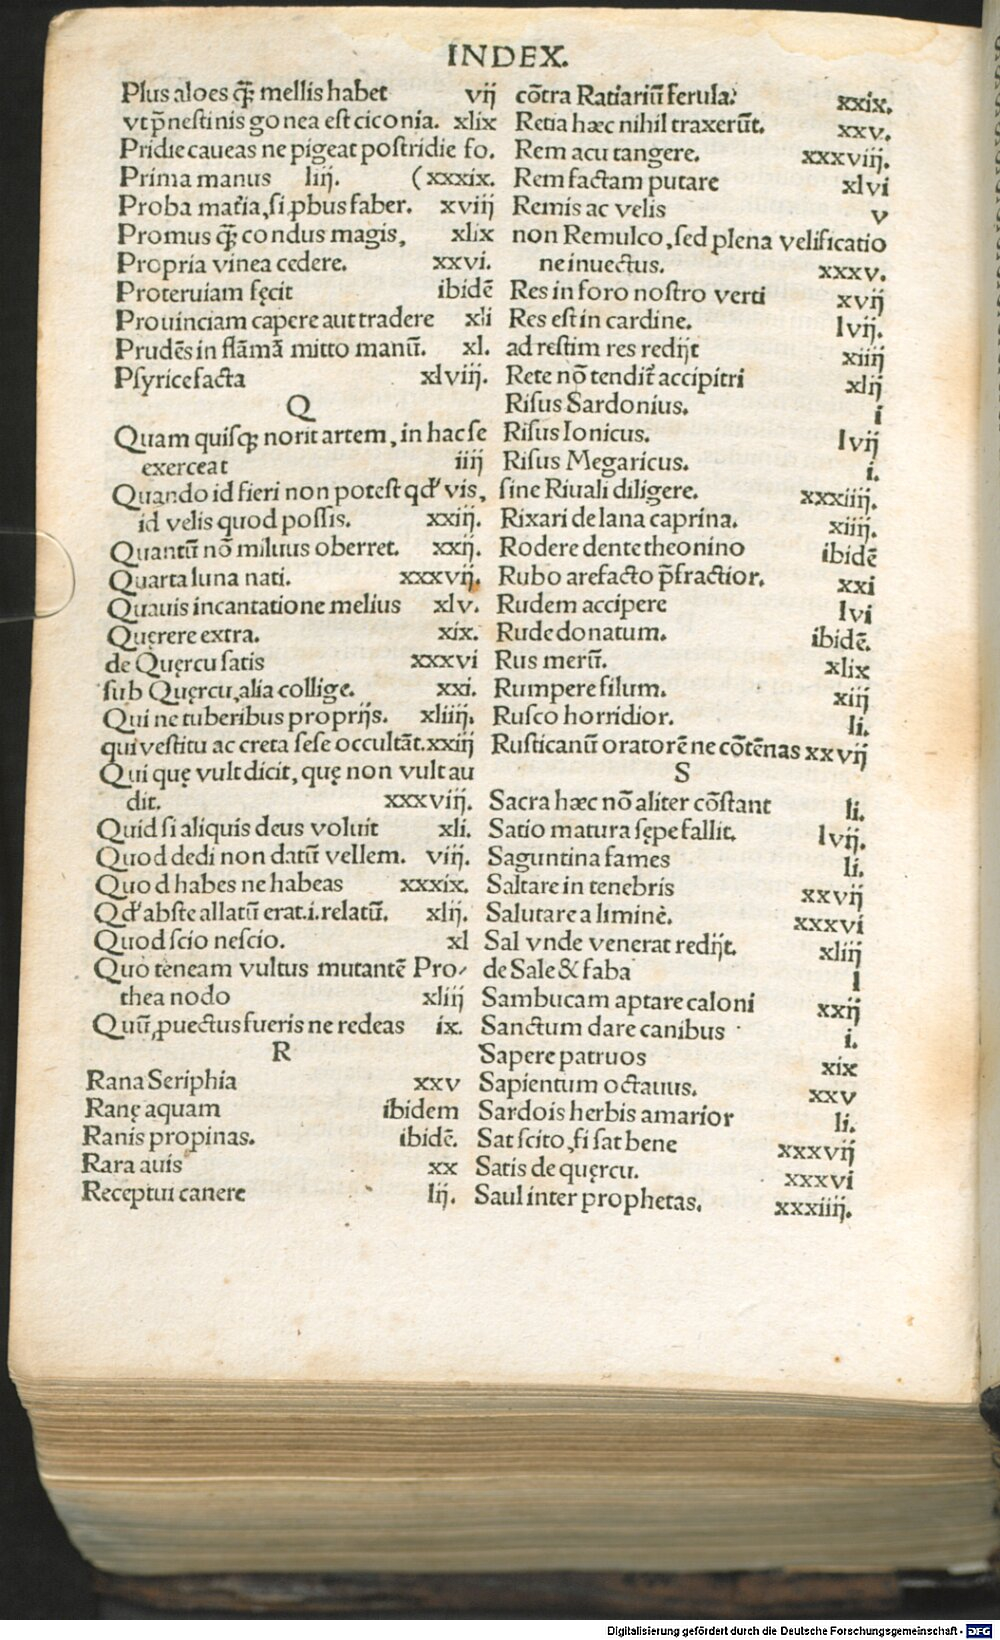 INDEX.
Plus aloes q̃ꝫ mellis habet vij
vt p̃nestinis gonea est ciconia. xlix
Pridie caueas ne pigeat postridie fo.
Prima manus liij. (xxxix.
Proba mat̃ia, si ꝓbus faber. xviij
Promus q̃ꝫ condus magis, xlix
Propria vinea cedere. xxvi.
Proteruiam fęcit ibidẽ
Prouinciam capere aut tradere xli
Prudẽs in flãmã mitto manũ. xl.
Psyrice facta xlviij.
Q
Quam quisqꝫ norit artem, in hac se
exerceat iiij
Quando id fieri non potest qđ vis,
id velis quod possis. xxiij.
Quantũ nõ miluus oberret. xxij.
Quarta luna nati. xxxvij.
Quauis incantatione melius xlv.
Quęrere extra. xix.
de Quęrcu satis xxxvi
sub Quęrcu, alia collige. xxi.
Qui ne tuberibus proprijs. xliiij.
qui vestitu ac creta sese occultãt. xxiij
Qui quę vult dicit, quę non vult au
dit. xxxviij.
Quid si aliquis deus voluit xli.
Quod dedi non datũ vellem. viij.
Quod habes ne habeas xxxix.
Qđ abste allatũ erat.i.relatũ. xlij.
Quod scio nescio. xl
Quo teneam vultus mutantẽ Pro-
thea nodo xliij
Quũ ꝓuectus fueris ne redeas ix.
R
Rana Seriphia xxv
Ranę aquam ibidem
Ranis propinas. ibidẽ.
Rara auis xx
Receptui canere lij.
cõtra Ratiariũ ferula. xxix.
Retia hæc nihil traxerũt. xxv.
Rem acu tangere. xxxviij.
Rem factam putare xlvi
Remis ac velis v
non Remulco, sed plena velificatio
ne inuectus. xxxv.
Res in foro nostro verti xvij
Res est in cardine. lvij.
ad restim res redijt xiiij
Rete nõ tendit̃ accipitri xlij
Risus Sardonius. i
Risus Ionicus. lvij
Risus Megaricus. i.
sine Riuali diligere. xxxiiij.
Rixari de lana caprina. xiiij.
Rodere dente theonino ibidẽ
Rubo arefacto p̃fractior. xxi
Rudem accipere lvi
Rude donatum. ibidẽ.
Rus merũ. xlix
Rumpere filum. xiij
Rusco horridior. li.
Rusticanũ oratorẽ ne cõtẽnas xxvij
S
Sacra hæc nõ aliter cõstant li.
Satio matura sępe fallit. lvij.
Saguntina fames li.
Saltare in tenebris xxvij
Salutare a limine. xxxvi
Sal vnde venerat redijt. xliij
de Sale & faba l
Sambucam aptare caloni xxij
Sanctum dare canibus i.
Sapere patruos xix
Sapientum octauus. xxv
Sardois herbis amarior li.
Sat scito, si sat bene xxxvij
Satis de quęrcu. xxxvi
Saul inter prophetas. xxxiiij.
Digitalisierung gefördert durch die Deutsche Forschungsgemeinschaft - DFG